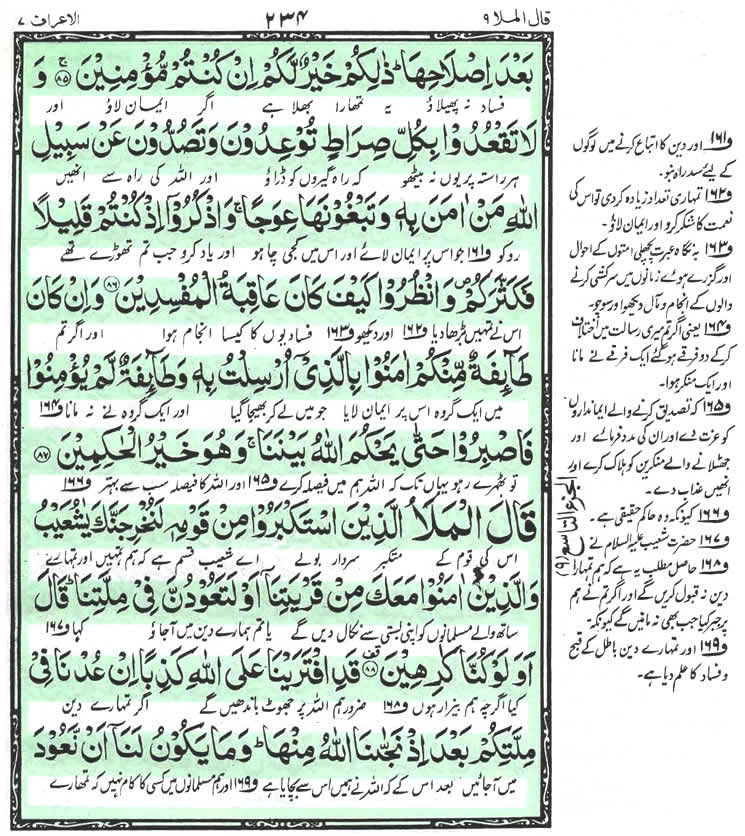 قال الملا ۹
۲۳۴
الاعراف ۷
بَعْدَ اِصْلَاحِهَا ؕ ذٰلِكُمْ خَيْرٌ لَّكُمْ اِنْ كُنْتُمْ مُّؤْمِنِيْنَ ۚ‏ ﴿۸۵﴾ وَ
فساد نہ پھیلاؤ یہ تمھارا بھلا ہے اگر ایمان لاؤ اور
لَا تَقْعُدُوْا بِكُلِّ صِرَاطٍ تُوْعِدُوْنَ وَتَصُدُّوْنَ عَنْ سَبِيْلِ
ہر راستہ پر یوں نہ بیٹھو کہ راہ گیروں کو ڈراؤ اور اللہ کی راہ سے انھیں
اللّٰهِ مَنْ اٰمَنَ بِهٖ وَتَبْغُوْنَهَا عِوَجًا ۚ وَاذْكُرُوْۤا اِذْ كُنْتُمْ قَلِيْلًا
روکو و۱۶۱ جو اس پر ایمان لائے اور اس میں کجی چاہو اور یاد کرو جب تم تھوڑے تھے
فَكَثَّرَكُمْ ۪ وَانْظُرُوْا كَيْفَ كَانَ عَاقِبَةُ الْمُفْسِدِيْنَ ﴿۸۶﴾ وَاِنْ كَانَ
اس نے تمہیں بڑھا دیا و۱۶۲ اور دیکھو و۱۶۳ فسادیوں کا کیسا انجام ہوا اور اگر تم
طَآئِفَةٌ مِّنْكُمْ اٰمَنُوْا بِالَّذِىْۤ اُرْسِلْتُ بِهٖ وَطَآئِفَةٌ لَّمْ يُؤْمِنُوْا
میں ایک گروہ اس پر ایمان لایا جو میں لے کر بھیجا گیا اور ایک گروہ نے نہ مانا و۱۶۴
فَاصْبِرُوْا حَتّٰى يَحْكُمَ اللّٰهُ بَيْنَنَا ۚ وَهُوَ خَيْرُ الْحٰكِمِيْنَ ﴿۸۷﴾
تو ٹھہرے رہو یہاں تک کہ اللہ ہم میں فیصلہ کرے و۱۶۵ اور اللہ کا فیصلہ سب سے بہتر و۱۶۶
قَالَ الْمَلَاُ الَّذِيْنَ اسْتَكْبَرُوْا مِنْ قَوْمِهٖ لَنُخْرِجَنَّكَ يٰشُعَيْبُ
اس کی قوم کے متکبر سردار بولے اے شعیب قسم ہے کہ ہم تمہیں اور تمہارے
وَالَّذِيْنَ اٰمَنُوْا مَعَكَ مِنْ قَرْيَتِنَاۤ اَوْ لَتَعُوْدُنَّ فِىْ مِلَّتِنَا ؕ قَالَ
ساتھ والے مسلمانوں کو اپنی بستی سے نکال دیں گے یا تم ہمارے دین میں آجاؤ کہا و۱۶۷
اَوَلَوْ كُنَّا كٰرِهِيْنَ ﴿۸۸﴾ قَدِ افْتَرَيْنَا عَلَى اللّٰهِ كَذِبًا اِنْ عُدْنَا فِىْ
کیا اگرچہ ہم بیزار ہوں و۱۶۸ ضرور ہم اللہ پر جھوٹ باندھیں گے اگر تمہارے دین
مِلَّتِكُمْ بَعْدَ اِذْ نَجّٰٮنَا اللّٰهُ مِنْهَا ؕ وَمَا يَكُوْنُ لَنَاۤ اَنْ نَّعُوْدَ
میں آجائیں بعد اس کے کہ اللہ نے ہمیں اس سے بچایا ہے و۱۶۹ اور ہم مسلمانوں میں کسی کا کام نہیں کہ تمھارے
و۱۶۱ اور دین کا اتباع کرنے میں لوگوں
کے لیئے سد راہ نہ بنو۔
و۱۶۲ تمہاری تعداد زیادہ کر دی تو اس کی
نعمت کا شکر کرو اور ایمان لاؤ۔
و۱۶۳ بہ نگاہ عبرت پچھلی امتوں کے احوال
اور گزرے ہوئے زمانوں میں سرکشی کرنے
والوں کے انجام و مآل دیکھو اور سوچو۔
و۱۶۴ یعنی اگر تم میری رسالت میں اختلاف
کرکے دو فرقے ہوگئے ایک فرقے نے مانا
اور ایک منکر ہوا۔
و۱۶۵ کہ تصدیق کرنے والے ایمانداروں
کو عزت دے اور ان کی مدد فرمائے اور
جھٹلانے والے منکرین کو ہلاک کرے اور
انھیں عذاب دے۔
و۱۶۶ کیونکہ وہ حاکم حقیقی ہے۔
و۱۶۷ حضرت شعیب علیہ السلام نے
و۱۶۸ حاصل مطلب یہ ہے کہ ہم تمہارا
دین نہ قبول کریں گے اور اگر تم نے ہم
پر جبر کیا جب بھی نہ مانیں گے کیونکہ۔
و۱۶۹ اور تمہارے دین باطل کے قبح
و فساد کا علم دیا ہے۔
الجزء التاسع (۹)